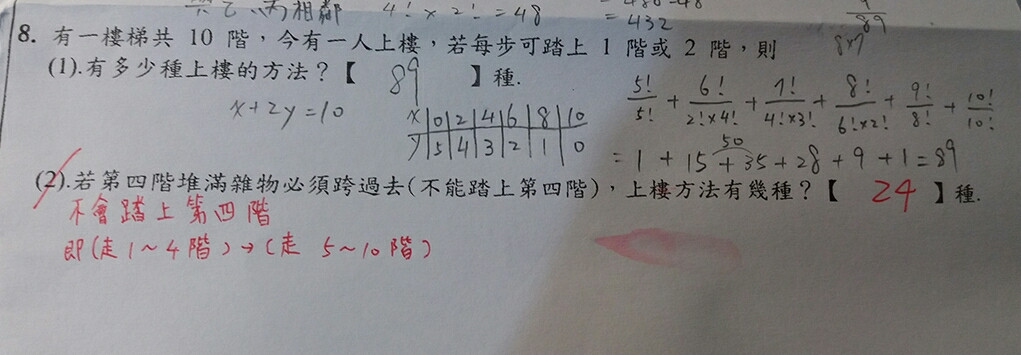 共乙、丙相鄰 4!×2!=48
=432
89
8. 有一樓梯共 10 階，今有一人上樓，若每步可踏上 1 階或 2 階，則
(1).有多少種上樓的方法？【 89 】種.
x+2y=10
x 0 2 4 6 8 10
y 5 4 3 2 1 0
5!/5! + 6!/2!×4! + 7!/4!×3! + 8!/6!×2! + 9!/8! + 10!/10!
50
=1+15+35+28+9+1=89
(2).若第四階堆滿雜物必須跨過去(不能踏上第四階)，上樓方法有幾種？【 24 】種.
不會踏上第四階
即(走1~4階)→(走 5~10階)